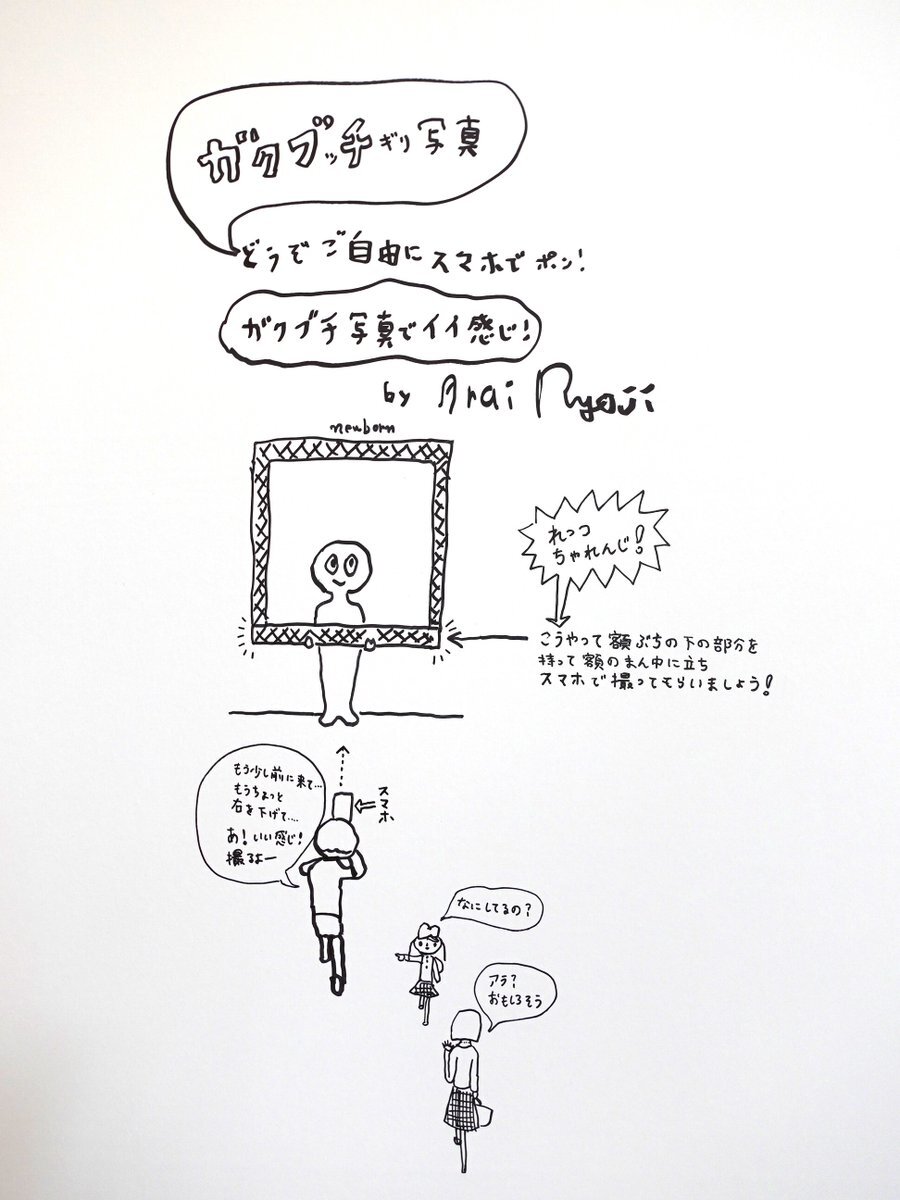 ガクブッチギリ写真
どうぞご自由にスマホでポン!
ガクブチ写真でイイ感じ!
by Arai Ryoji
newborn
れっつ
ちゃれんじ!
こうやって額ぶちの下の部分を
持って額のまん中に立ち
スマホで撮ってもらいましょう!
もう少し前に来て...
もうちょっと
右を下げて....
あ!いい感じ!
撮るよー
スマホ
なにしてるの?
アラ?
おもしろそう